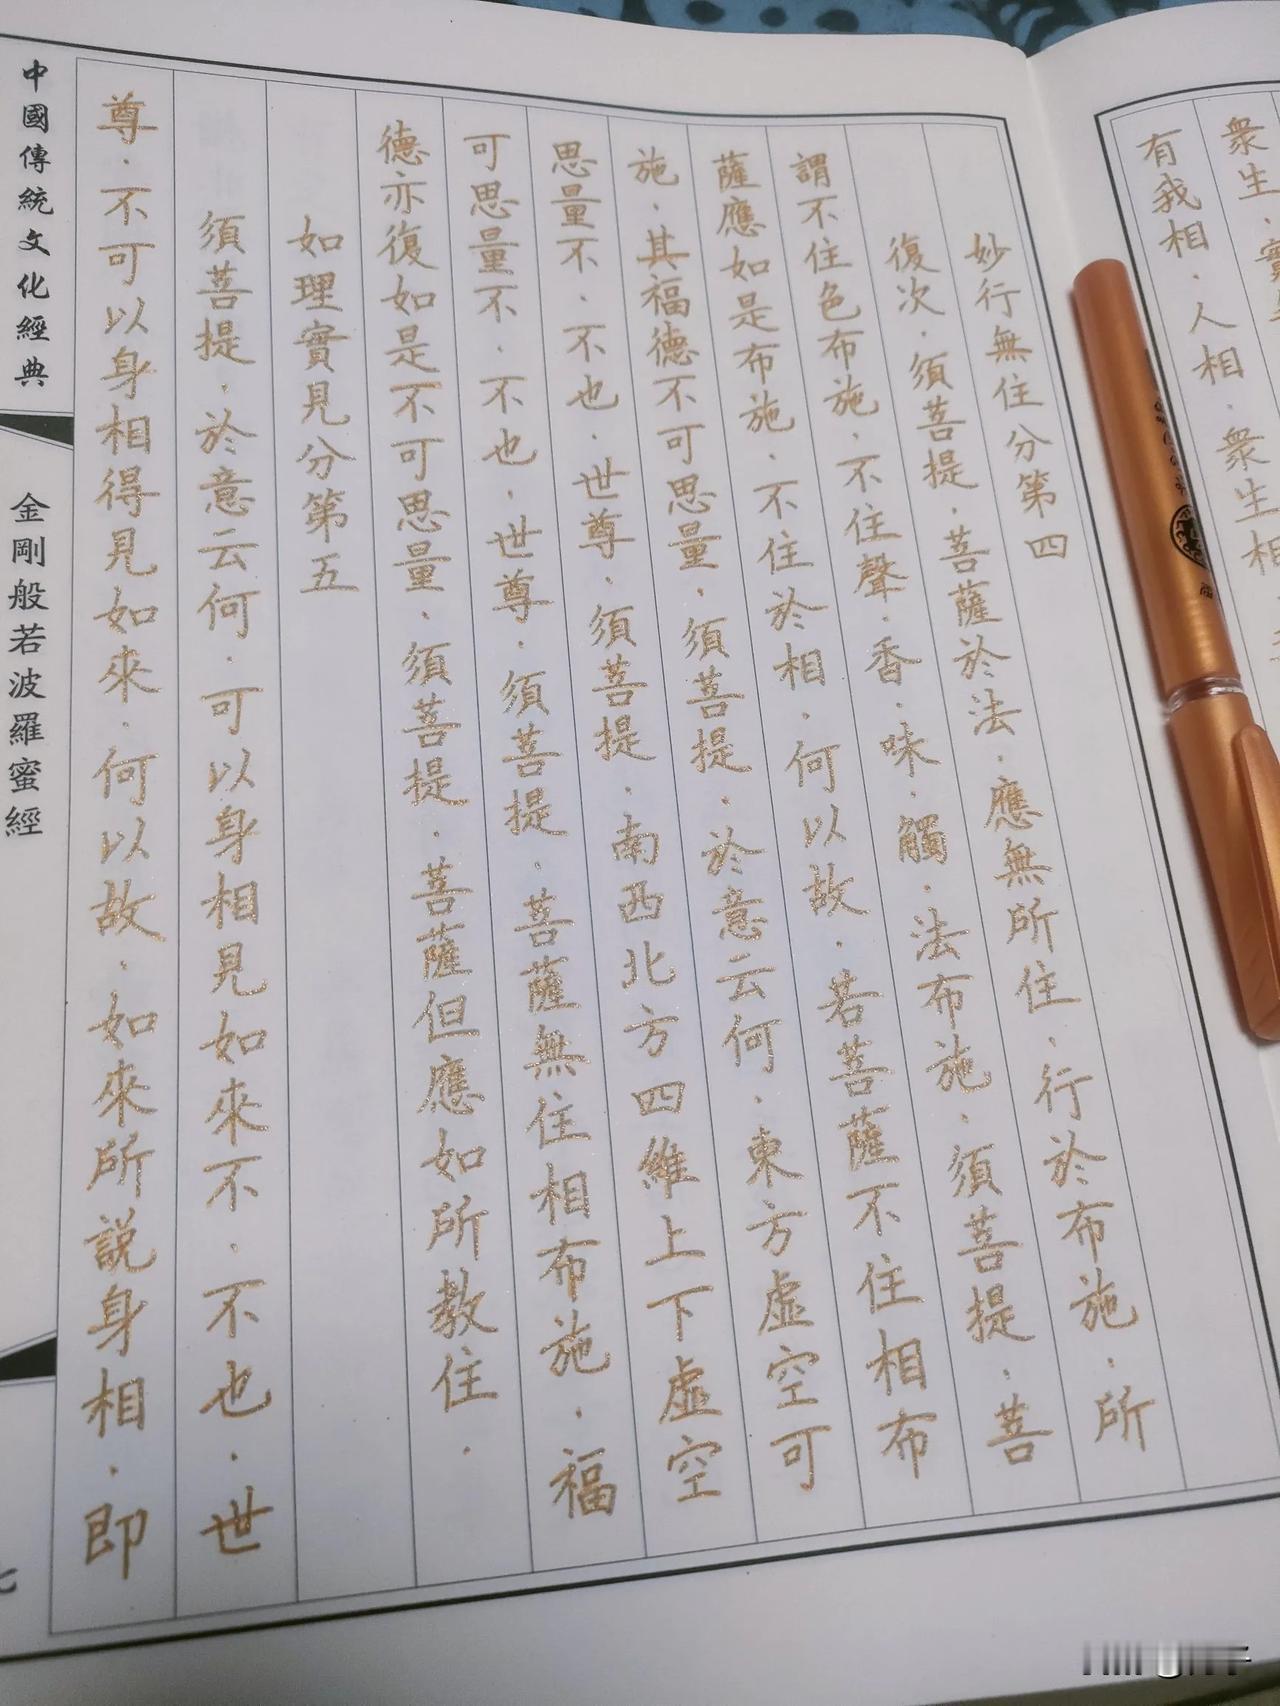 衆生
有我相．人相．衆生相
妙行無住分第四
復次．須菩提．菩薩於法．應無所住．行於布施．所
謂不住色布施．不住聲．香．味．觸．法布施．須菩提．菩
薩應如是布施．不住於相．何以故．若菩薩不住相布
施．其福德不可思量．須菩提．於意云何．東方虛空可
思量不．不也．世尊．須菩提．南西北方四維上下虛空
可思量不．不也．世尊．須菩提．菩薩無住相布施．福
德亦復如是不可思量．須菩提．菩薩但應如所教住．
如理實見分第五
須菩提．於意云何．可以身相見如來不．不也．世
尊．不可以身相得見如來．何以故．如來所說身相．即
中國傳統文化經典
金剛般若波羅蜜經
七